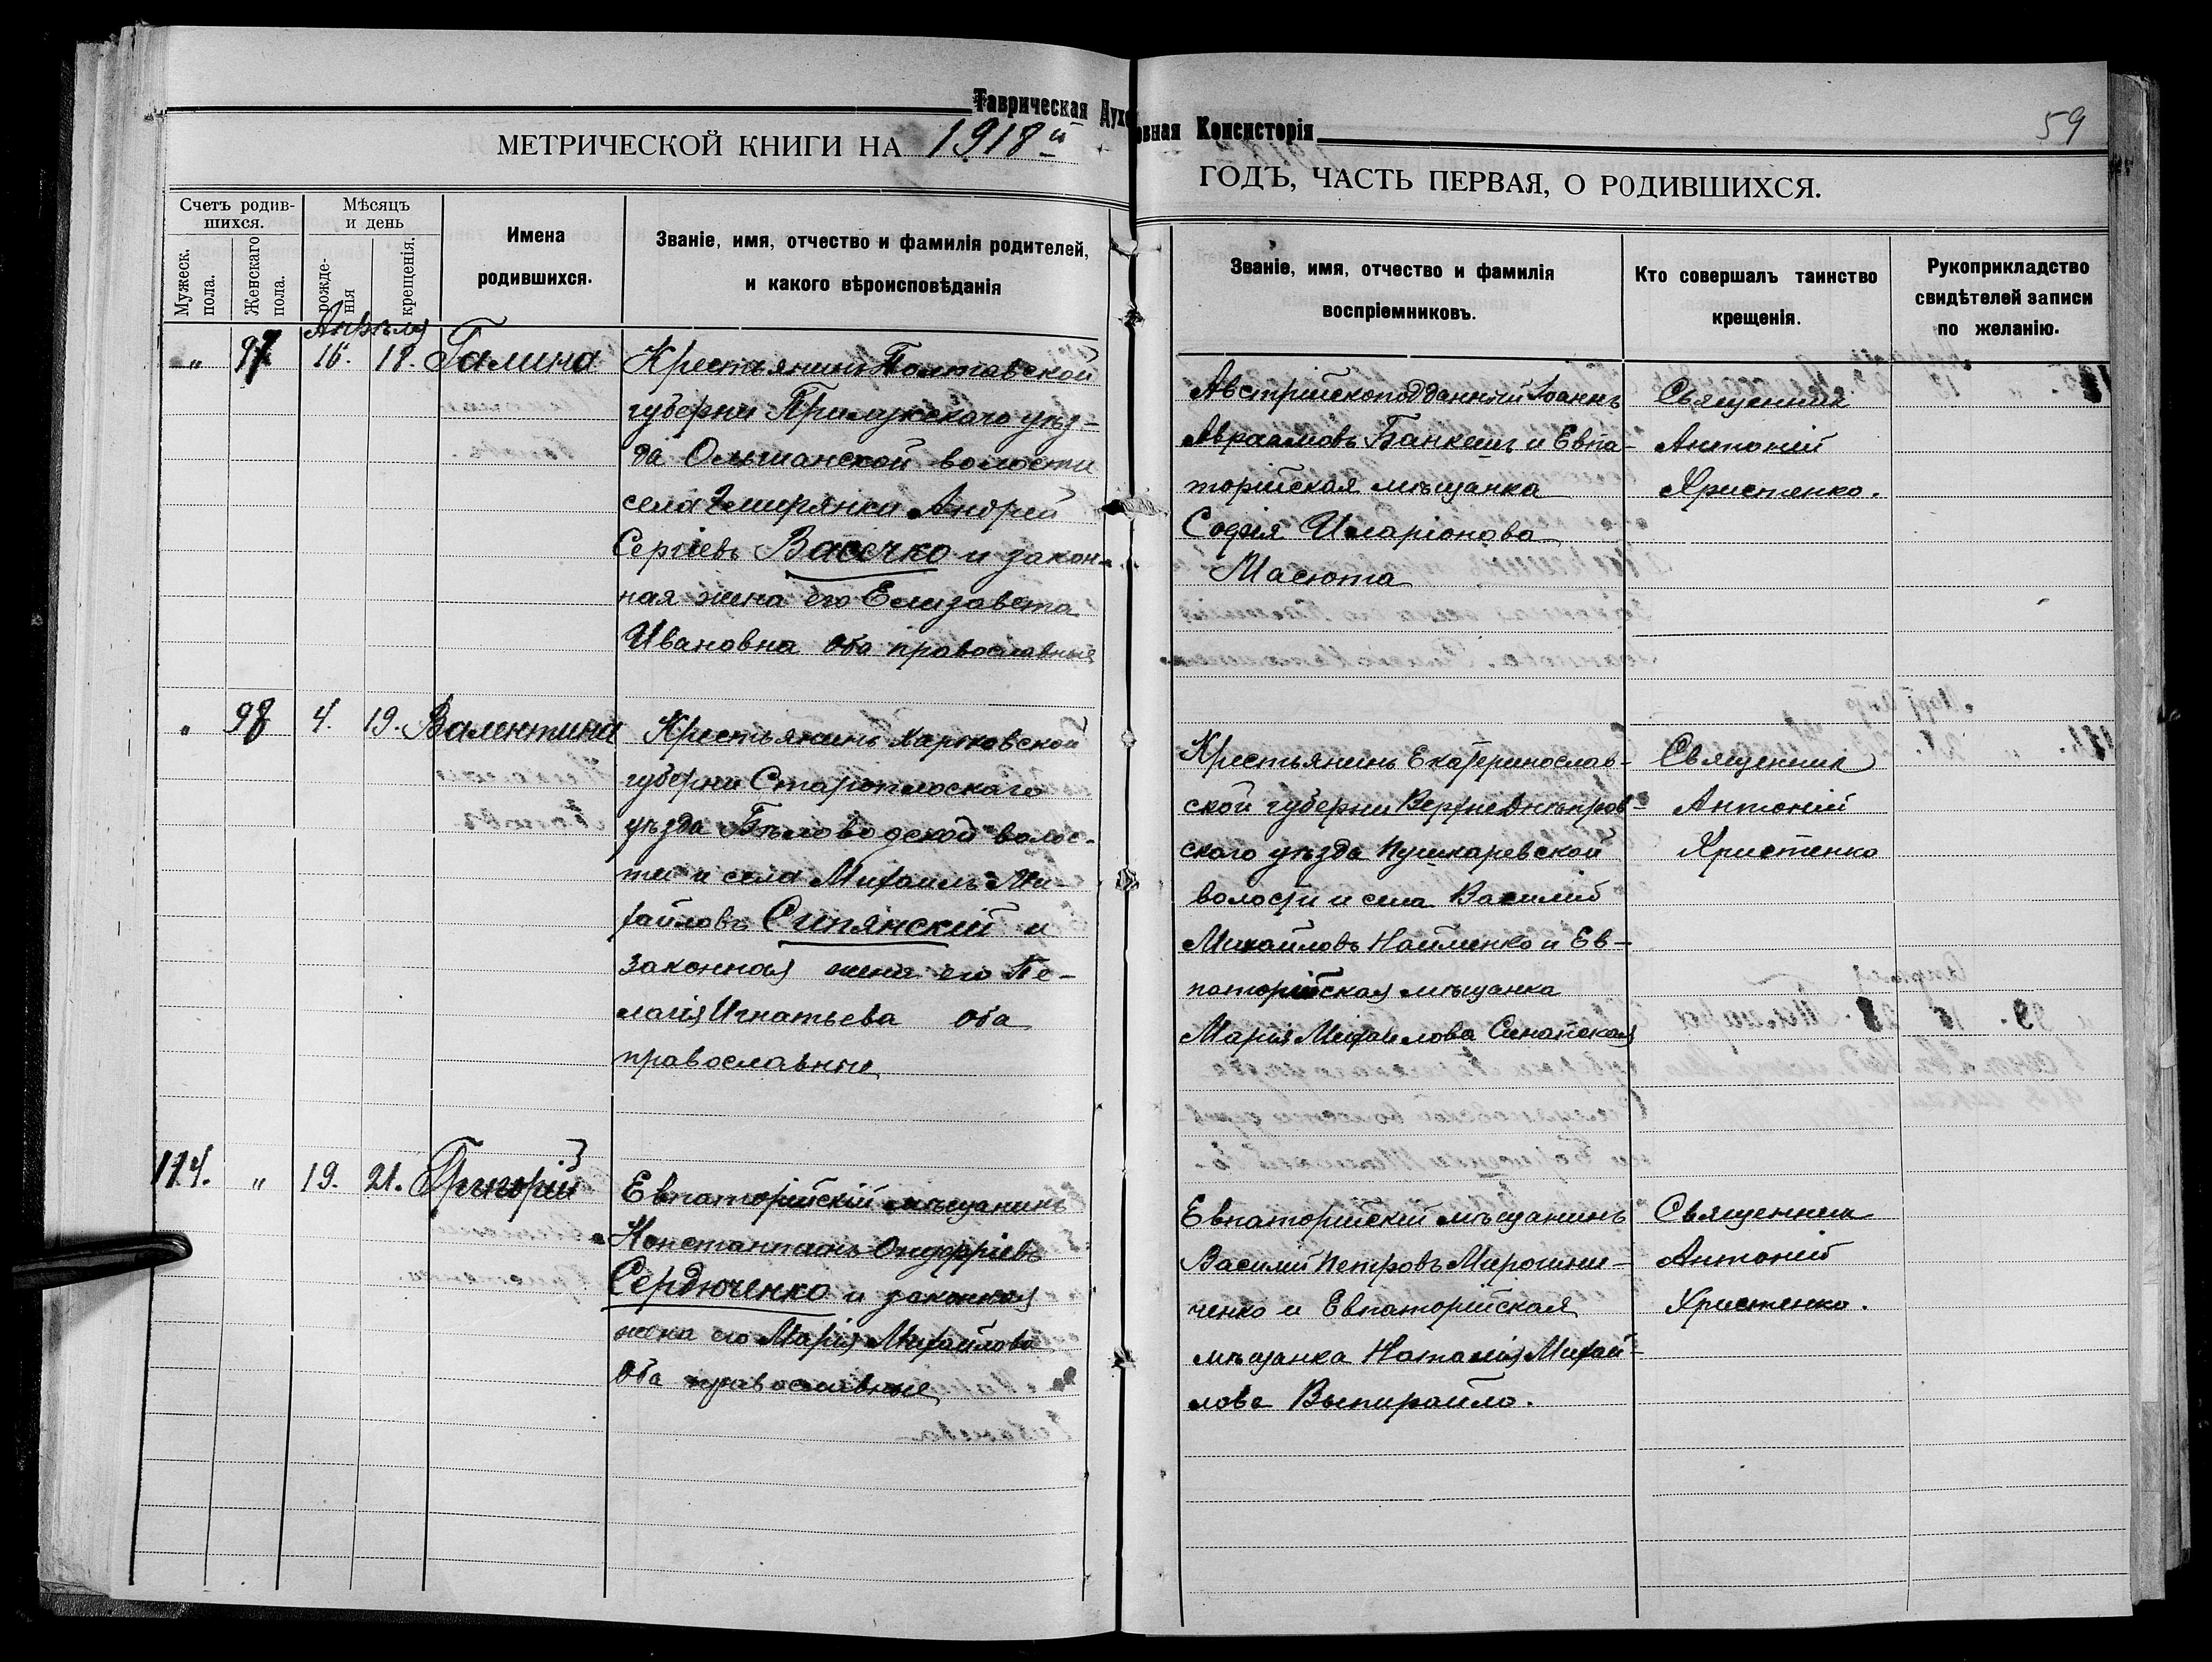 Таврическая Духовная Консисторія
МЕТРИЧЕСКОЙ КНИГИ НА 1918й
ГОДЪ, ЧАСТЬ ПЕРВАЯ, О РОДИВШИХСЯ.
59
Счетъ родив-
шихся.
Мужеск.
пола.
Женскаго
пола.
Мѣсяцъ
и день
рожде-
нія
крещенія.
Имена
родившихся.
Званіе, имя, отчество и фамилія родителей,
и какого вѣроисповѣданія
Званіе, имя, отчество и фамилія
воспріемниковъ.
Кто совершалъ таинство
крещенія.
Рукоприкладство
свидѣтелей записи
по желанію.
Апрѣля
„ 97 16. 18. Галина
Крестьянинъ Полтавской
губерни Прилукскаго уѣз-
да Ольшанской волости
села Андрей
Сергіевъ Васечко и закон-
ная жена его Елизавета
Ивановна оба православные
Австрійскоподданный Іоаннъ
Авраамовъ Банкешъ и Евпа-
торійская мѣщанка
Софія Иларіонова
Масюта
Священник
Антоній
Христенко.
„ 98 4. 19. Валентина
Крестьянинъ Харьковской
губерни
уѣзда Бѣловодской волос-
ти и села Михаилъ Ми-
хайловъ и
законная жена его Пе-
лагія Игнатьева оба
православные
Крестьянинъ Екатеринослав-
ской губерни Верхнеднѣпров-
скаго уѣзда Пушкаревской
волости и села Василий
Михайловъ Найменко и Ев-
паторійская мѣщанка
Марія Михайлова Синайская
Священник
Антоній
Христенко
114. „ 19. 21. Григорій
Евпаторійскій мѣщанинъ
Константинъ Онуфріевъ
Сердюченко и законная
жена его Марія Михайлова
оба православные
Евпаторійскій мѣщанинъ
Василій Петровъ Мирошни-
ченко и Евпаторійская
мѣщанка Наталія Михай-
лова Выпирайло.
Священник
Антоній
Христенко.